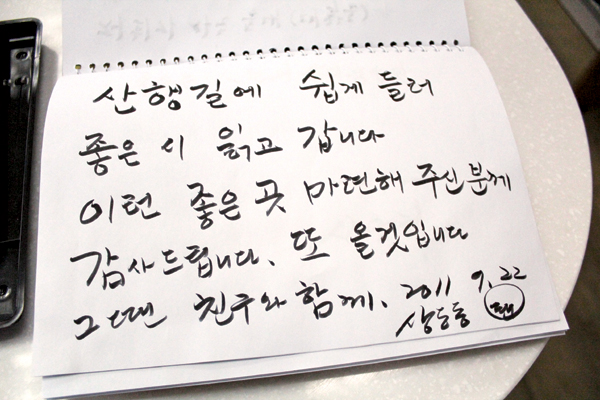 산행길에 쉽게 들러
좋은 시 읽고 갑니다
이런 좋은 곳 마련해 주신분께
감사드립니다. 또 올것입니다
그땐 친구와 함께. 2011 9. 22
상도동